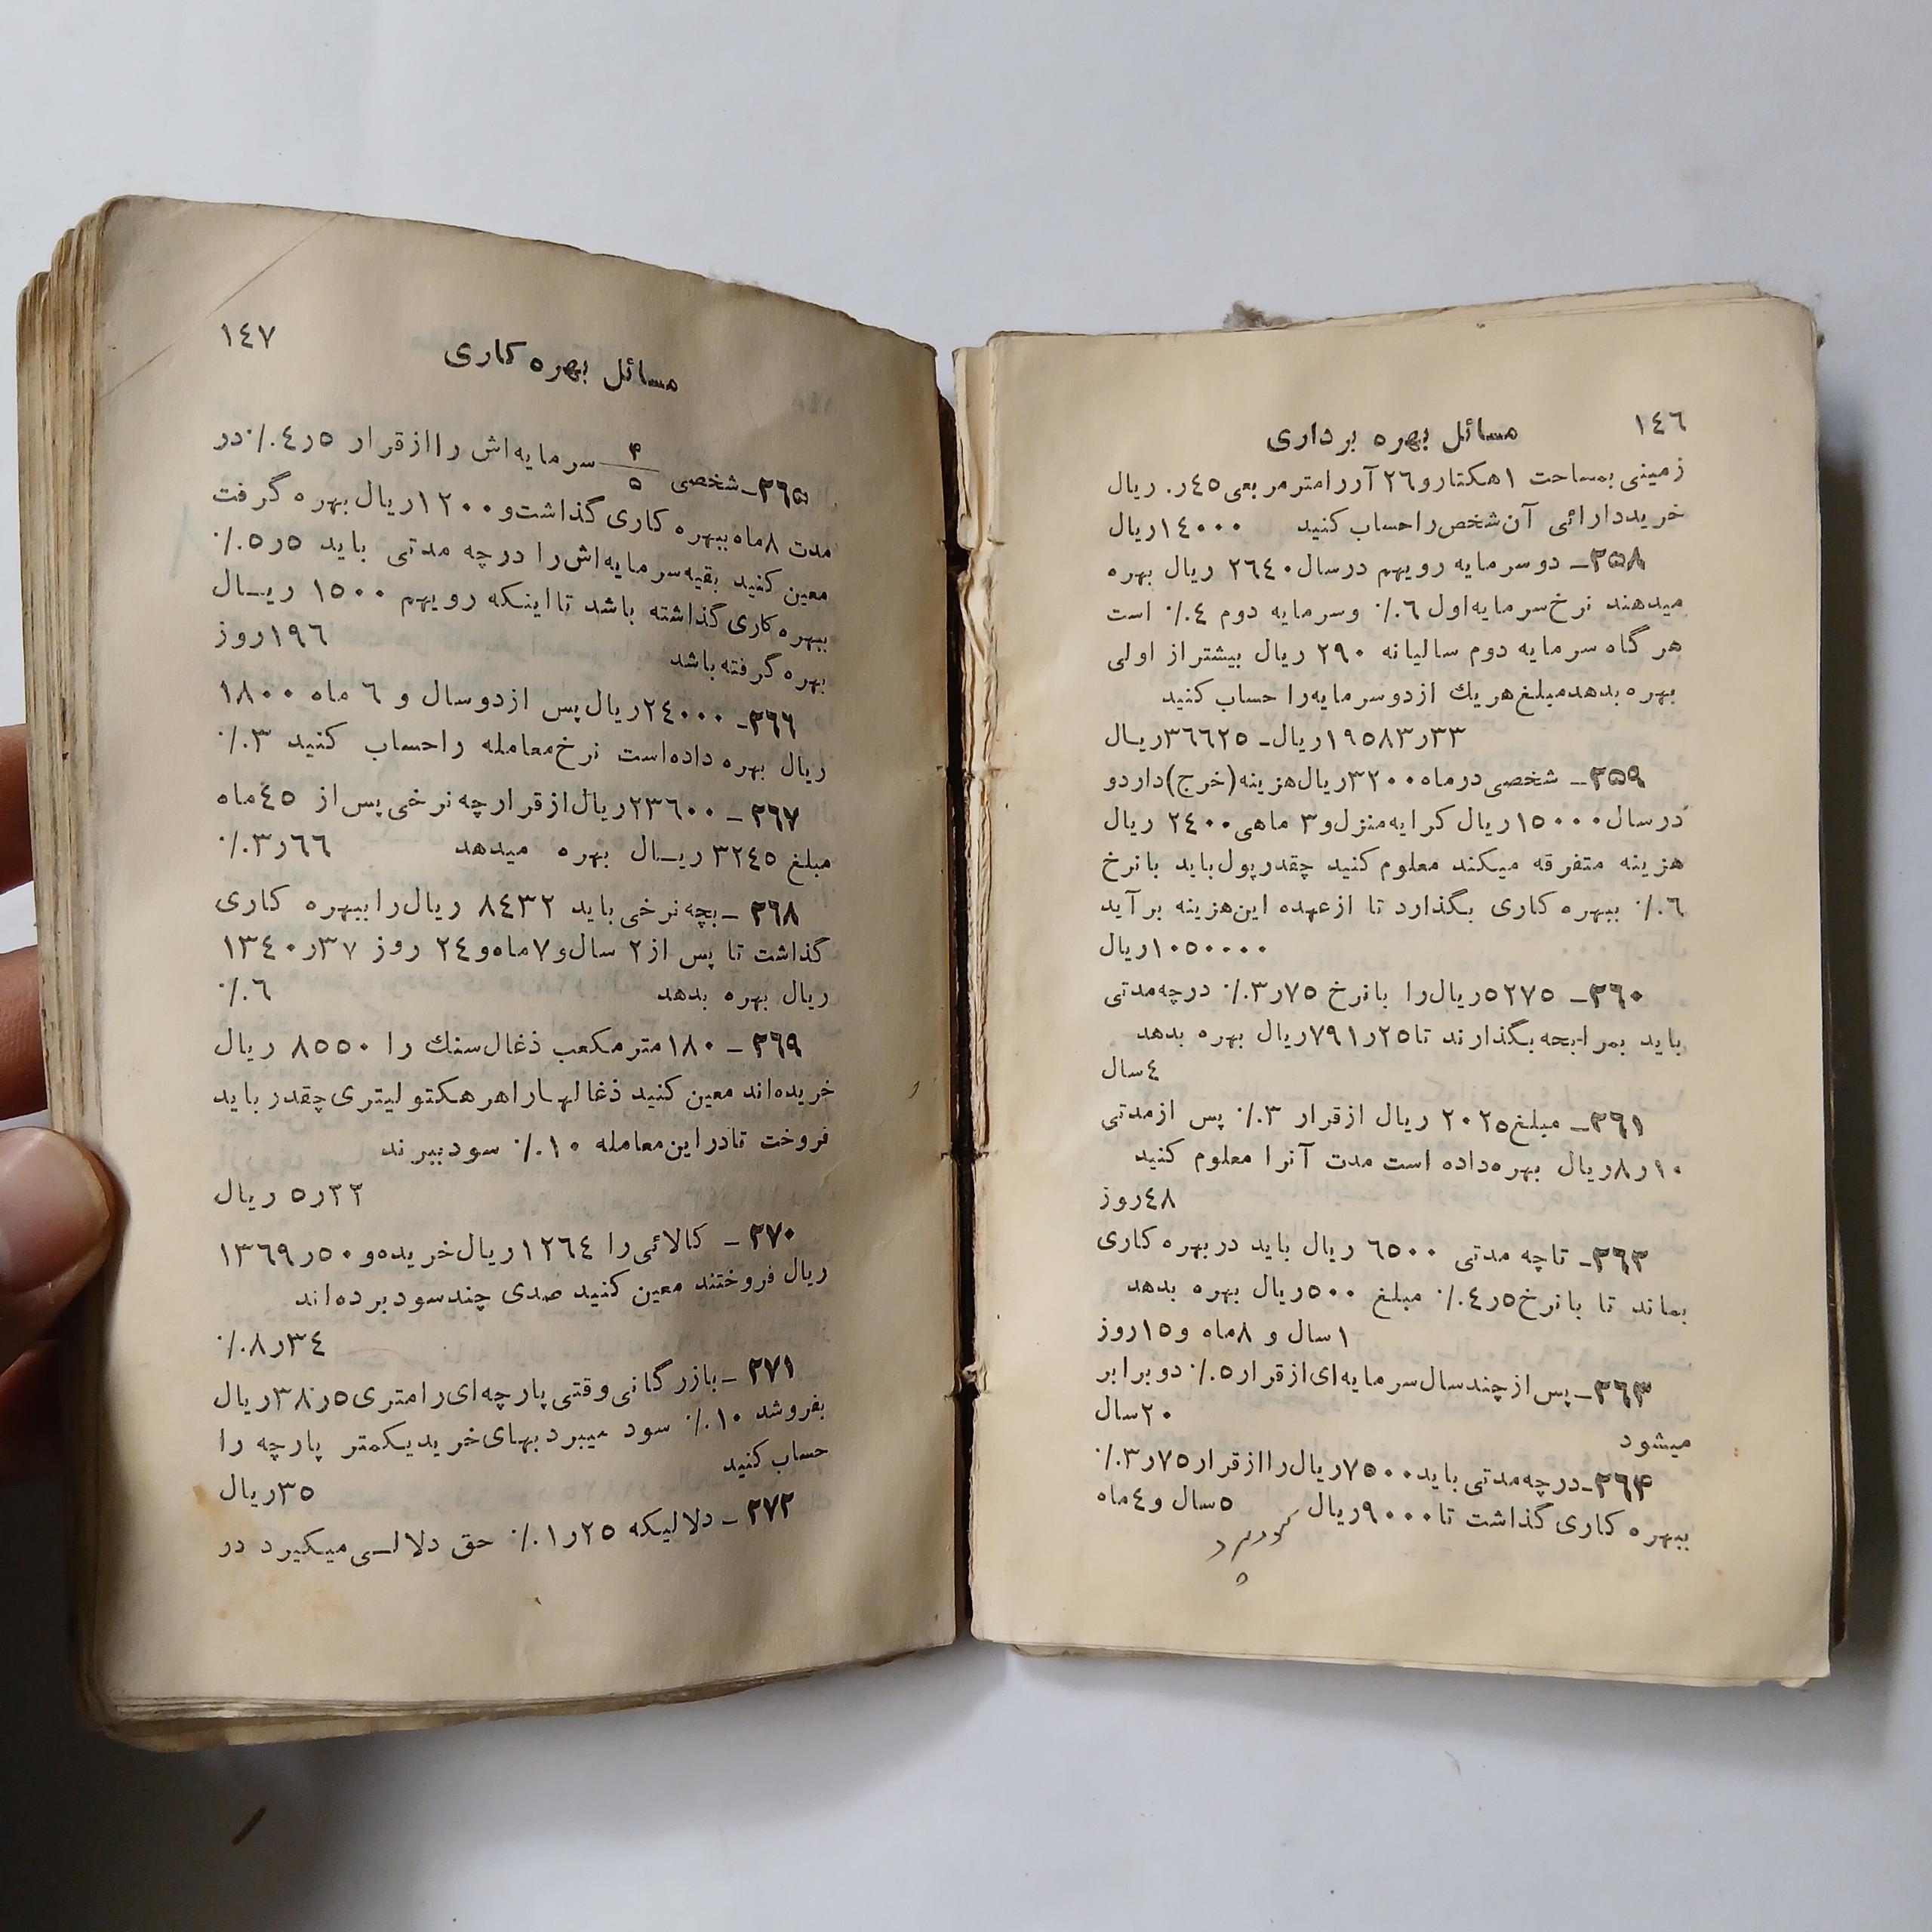 ١٤٦
مسائل بهره برداری
زمینی بمساحت ١هکتارو٢٦ آررامترمربعی٤٥ر٠ ریال
خریددارائی آن شخص راحساب کنید ١٤٠٠٠ریال
٣٥٨ـ دوسرمایه رویهم درسال٢٦٤٠ ریال بهره
میدهند نرخ سرمایه اول ٦٪ وسرمایه دوم ٤٪ است
هرگاه سرمایه دوم سالیانه ٢٩٠ ریال بیشتراز اولی
بهره بدهدمبلغ هریك ازدوسرمایه را حساب کنید
٣٣ر١٩٥٨٣ریال ـ ٣٦٦٢٥ریال
٣٥٩ـ شخصی درماه ٣٢٠٠ریال هزینه(خرج)داردو
درسال ١٥٠٠٠ریال کرایه منزل و٣ ماهی ٢٤٠٠ ریال
هزینه متفرقه میکند معلوم کنید چقدرپول باید بانرخ
٦٪ ببهره کاری بگذارد تا ازعهده این هزینه برآید
١٠٥٠٠٠٠ریال
٣٦٠ـ ٥٢٧٥ریال را بانرخ ٧٥ر٣٪ درچه مدتی
باید بمرابحه بگذارند تا ٢٥ر٧٩١ریال بهره بدهد
٤سال
٣٦١ـ مبلغ ٢٠٢٥ ریال ازقرار ٣٪ پس ازمدتی
١٠ر٨ریال بهره داده است مدت آنرا معلوم کنید
٤٨روز
٣٦٢ـ تاچه مدتی ٦٥٠٠ ریال باید دربهره کاری
بماند تا بانرخ ٥ر٤٪ مبلغ ٥٠٠ریال بهره بدهد
١سال و ٨ماه و١٥روز
٣٦٣ـ پس ازچندسال سرمایه ای ازقرار٥٪ دوبرابر
میشود ٢٠سال
٣٦٤ـ درچه مدتی باید ٧٥٠٠ریال راازقرار ٧٥ر٣٪
ببهره کاری گذاشت تا ٩٠٠٠ریال ٥سال و٤ماه
١٤٧
مسائل بهره کاری
٣٦٥ـ شخصی ۴/۵ سرمایه اش راازقرار ٥ر٤٪ در
مدت ٨ماه ببهره کاری گذاشت و ١٢٠٠ریال بهره گرفت
معین کنید بقیه سرمایه اش را درچه مدتی باید ٥ر٥٪
ببهره کاری گذاشته باشد تااینکه رویهم ١٥٠٠ ریال
بهره گرفته باشد ١٩٦روز
٣٦٦ـ ٢٤٠٠٠ریال پس ازدوسال و ٦ ماه ١٨٠٠
ریال بهره داده است نرخ معامله راحساب کنید ٣٪
٣٦٧ـ ٢٣٦٠٠ریال ازقرارچه نرخی پس از ٤٥ماه
مبلغ ٣٢٤٥ ریال بهره میدهد ٦٦ر٣٪
٣٦٨ـ بچه نرخی باید ٨٤٣٢ ریال راببهره کاری
گذاشت تا پس از ٢ سال و٧ماه و٢٤ روز ٣٧ر١٣٤٠
ریال بهره بدهد ٦٪
٣٦٩ـ ١٨٠مترمکعب ذغال سنك را ٨٥٥٠ ریال
خریده اند معین کنید ذغالهاراهرهکتولیتری چقدر باید
فروخت تادراین معامله ١٠٪ سودببرند
٢٢ر٥ ریال
٣٧٠ـ کالائی را ١٢٦٤ریال خریده و ٥٠ر١٣٦٩
ریال فروختند معین کنید صدی چندسودبرده اند
٣٤ر٨٪
٣٧١ـ بازرگانی وقتی پارچه ای رامتری ٥ر٣٨ریال
بفروشد ١٠٪ سود میبرد بهای خریدیکمتر پارچه را
حساب کنید
٣٥ریال
٢٧٢ـ دلالیکه ٢٥ر١٪ حق دلالی میگیرد در